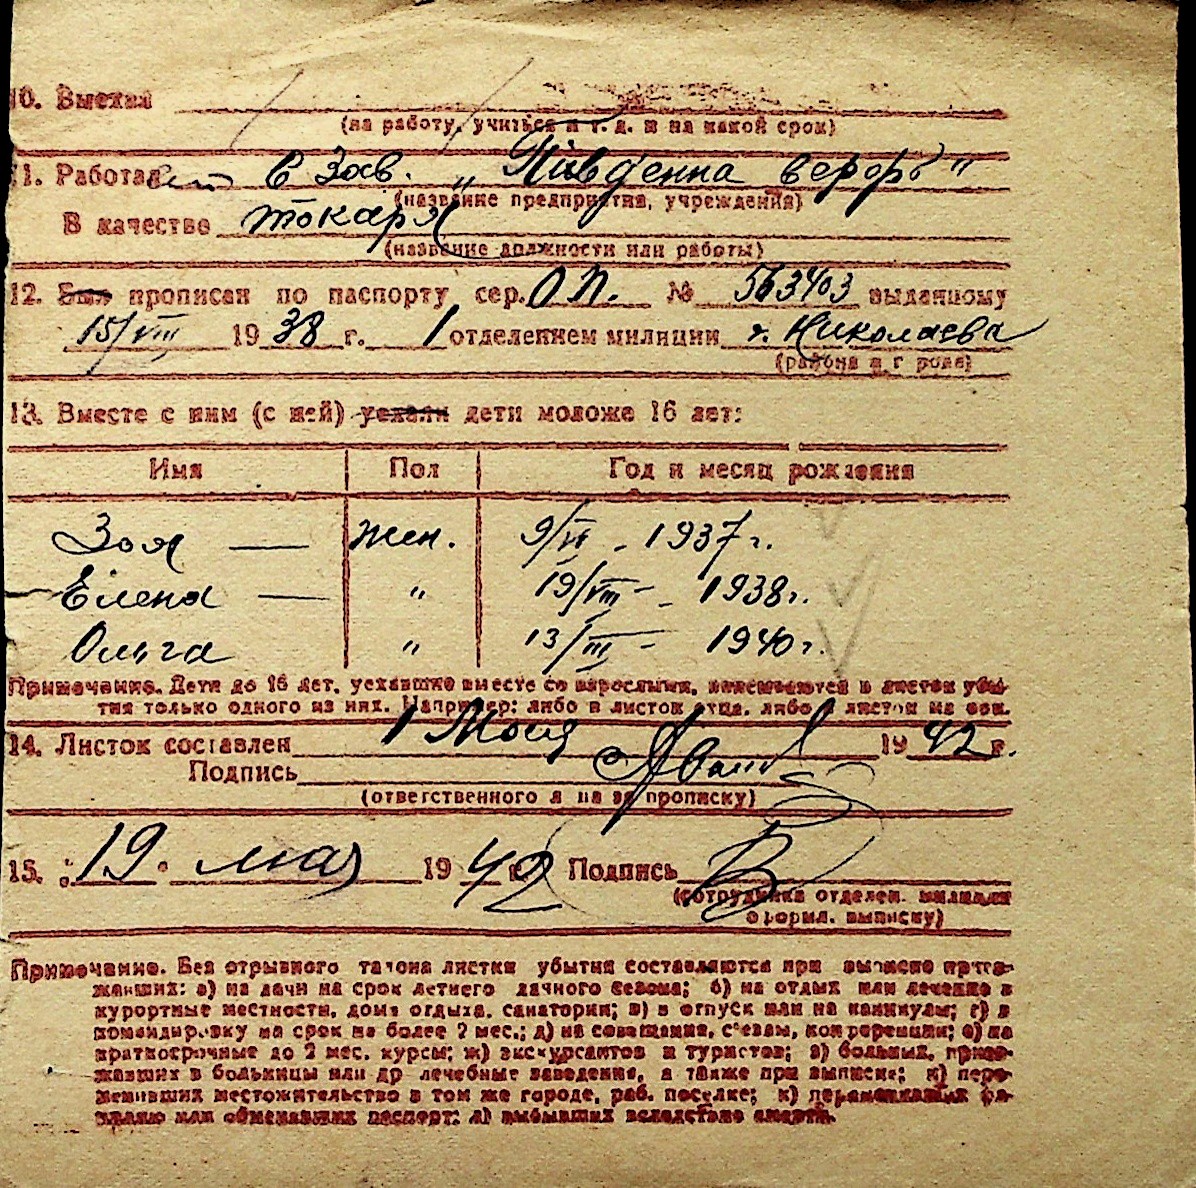 10. Выехал
(на работу, учиться и т. д. и на какой срок)
11. Работает в зав. „Південна верфь"
(название предприятия, учреждения)
В качестве токаря
(название должности или работы)
12. Был прописан по паспорту сер. О П. № 563403 выданному
15/VIII 1938 г. 1 отделением милиции г. Николаева
(района и города)
13. Вместе с ним (с ней) уехали дети моложе 16 лет:
Имя Пол Год и месяц рождения
Зоя — жен. 9/VI - 1937 г.
Елена — " 19/VIII - 1938 г.
Ольга " 13/III - 1940 г.
Примечание. Дети до 16 лет, уехавшие вместе со взрослыми, вписываются в листок убы-
тия только одного из них. Например: либо в листок отца, либо в листок матери.
14. Листок составлен 1 Мая 1942 г.
Подпись
(ответственного лица за прописку)
15. „19" мая 1942 г. Подпись
(сотрудника отделен. милиции
оформл. выписку)
Примечание. Без отрывного талона листки убытия составляются при выписке приез-
жавших: а) на дачи на срок летнего дачного сезона; б) на отдых или лечение в
курортные местности, дома отдыха, санатории; в) в отпуск или на каникулы; г) в
командировку на срок не более 2 мес.; д) на совещания, съезды, конференции; е) на
краткосрочные до 2 мес. курсы; ж) экскурсантов и туристов; з) больных, приез-
жавших в больницы или др лечебные заведения, а также при выписке; и) пере-
менивших местожительство в том же городе, раб. поселке; к) переменивших фа-
милию или обменявших паспорт; л) выбывших вследствие смерти.